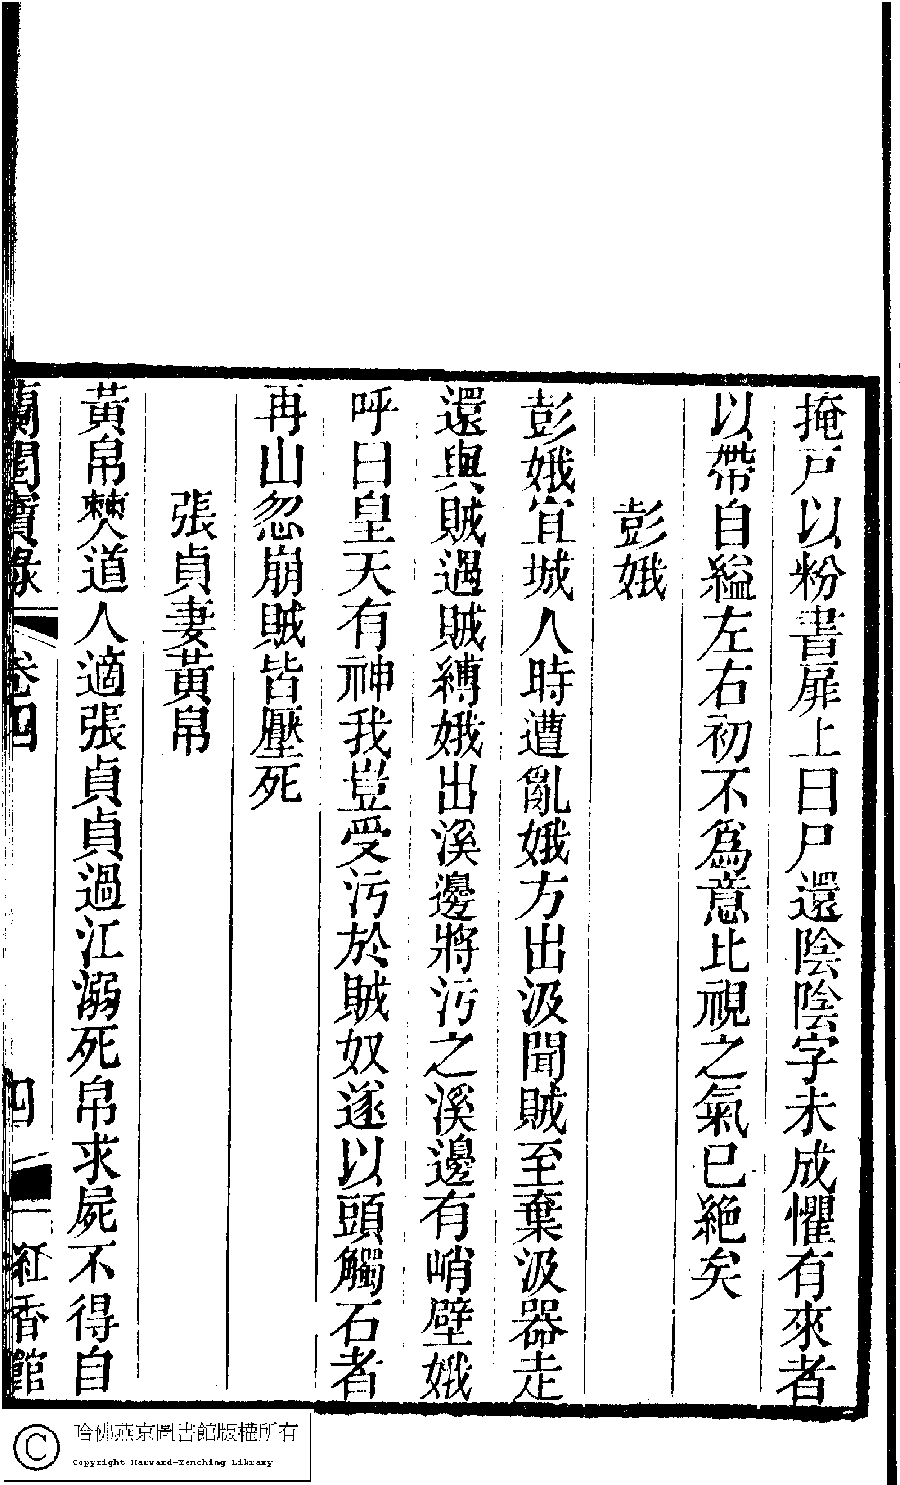 掩戸以粉書扉上曰尸還陰陰字未成懼有來者
以帶自縊左右初不爲意比視之氣已絶矣
彭娥
彭娥宜城人時遭亂娥方出汲聞賊至棄汲器走
還與賊遇賊縛娥出溪邊將污之溪邊有峭壁娥
呼曰皇天有神我豈受污於賊奴遂以頭觸石者
再山忽崩賊皆壓死
張貞妻黃帛
黃帛僰道人適張貞貞過江溺死帛求屍不得自
蘭閨寶錄 卷四 四 紅香館
哈佛燕京圖書館版權所有
Copyright Harvard-Yenching Library